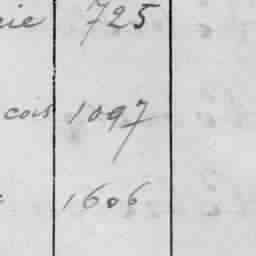 cie 725
cois 1097
1606